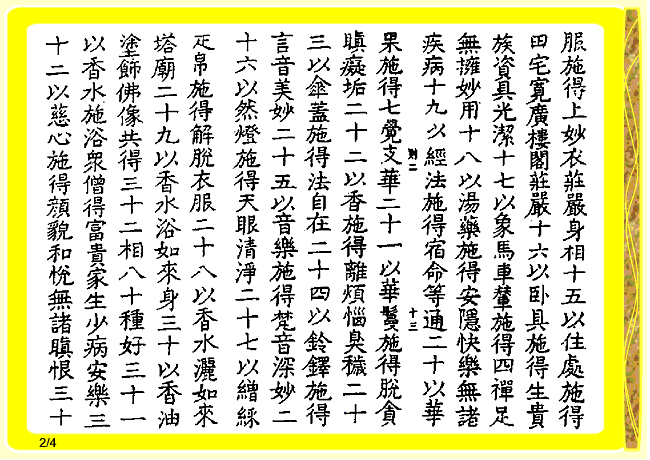 服施得上妙衣莊嚴身相十五以住處施得
田宅寬廣樓閣莊嚴十六以臥具施得生貴
族資具光潔十七以象馬車輦施得四禪足
無擁妙用十八以湯藥施得安隱快樂無諸
疾病十九以經法施得宿命等通二十以華
十三
果施得七覺支華二十一以華鬘施得脫貪
瞋癡垢二十二以香施得離煩惱臭穢二十
三以傘蓋施得法自在二十四以鈴鐸施得
言音美妙二十五以音樂施得梵音深妙二
十六以然燈施得天眼清淨二十七以繒綵
疋帛施得解脫衣服二十八以香水灑如來
塔廟二十九以香水浴如來身三十以香油
塗飾佛像共得三十二相八十種好三十一
以香水施浴眾僧得富貴家生少病安樂三
十二以慈心施得顏貌和悅無諸瞋恨三十
2/4